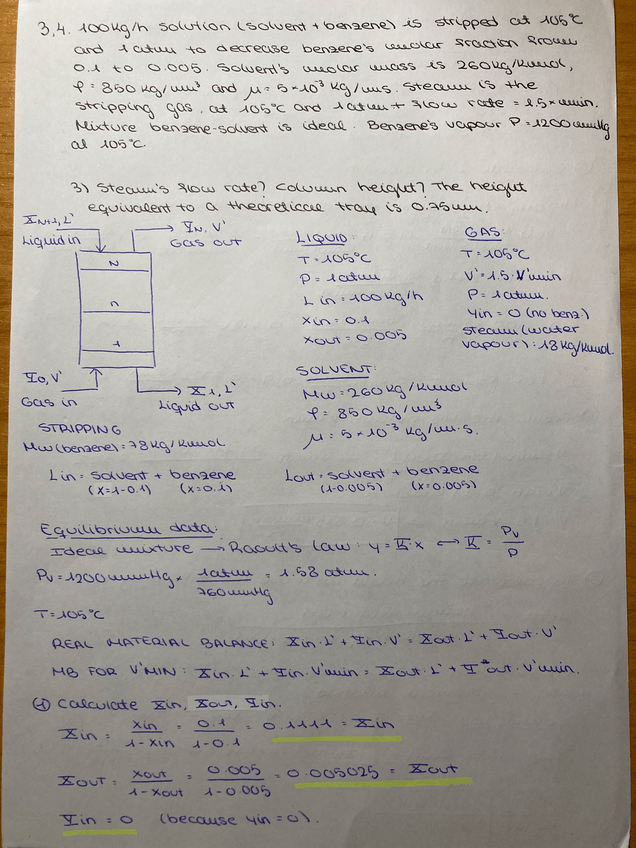 3,4. 100kg/h solution (solvent + benzene) is stripped at 105°C
and 1 atm to decrease benzene's molar fraction from
0.1 to 0.005. Solvent's molar mass is 260kg/kmol,
ρ = 850 kg/m³ and μ = 5×10³ kg/ms. Steam is the
stripping gas, at 105°C and 1 atm + flow rate = 1.5×min.
Mixture benzene-solvent is ideal. Benzene's vapour P = 1200 mmHg
at 105°C.
3) Steam's flow rate? Column height? The height
equivalent to a theoretical tray is 0.75 m.
X̄N+1, L'
Liquid in
ȲN, V'
Gas out
N
n
1
Ȳ0, V'
Gas in
X̄1, L'
Liquid out
LIQUID:
T = 105°C
P = 1 atm
L in = 100 kg/h
xin = 0.1
xout = 0.005
GAS:
T = 105°C
V' = 1.5·V'min
P = 1 atm.
yin = 0 (no benz.)
steam (water
vapour): 18 kg/kmol
SOLVENT:
Mw = 260 kg/kmol
ρ = 850 kg/m³
μ = 5×10⁻³ kg/m·s.
STRIPPING
Mw (benzene) = 78 kg/kmol
Lin = solvent + benzene
(x=1-0.1) (x=0.1)
Lout = solvent + benzene
(1-0.005) (x=0.005)
Equilibrium data:
Ideal mixture → Raoult's Law: y = K·x ⟷ K = Pv/P
Pv = 1200 mmHg × 1 atm/760 mmHg = 1.58 atm.
T = 105°C
REAL MATERIAL BALANCE: X̄in·L' + Ȳin·V' = X̄out·L' + Ȳout·V'
MB FOR V'MIN: X̄in·L' + Ȳin·V'min = X̄out·L' + Ȳ*out·V'min.
① Calculate X̄in, X̄out, Ȳin.
X̄in = xin/1-xin = 0.1/1-0.1 = 0.1111 = X̄in
X̄out = xout/1-xout = 0.005/1-0.005 = 0.005025 = X̄out
Ȳin = 0 (because yin = 0).